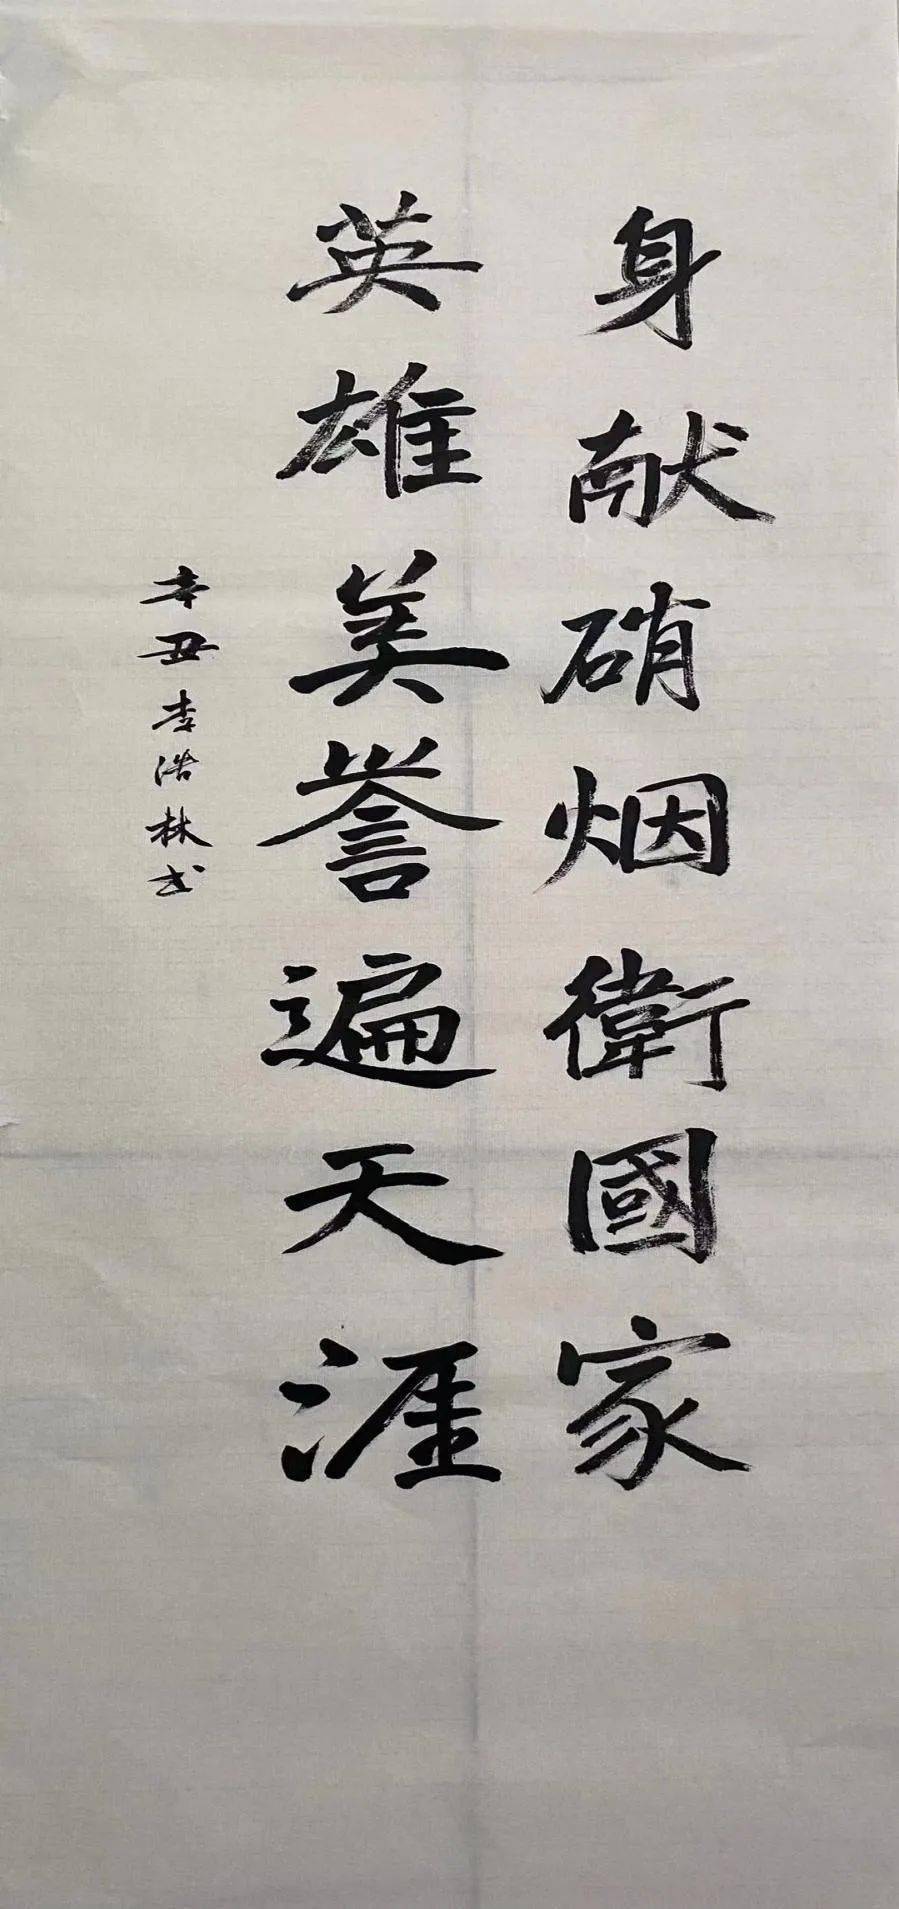 身献硝烟衛國家
英雄美誉遍天涯
辛丑李浩林书